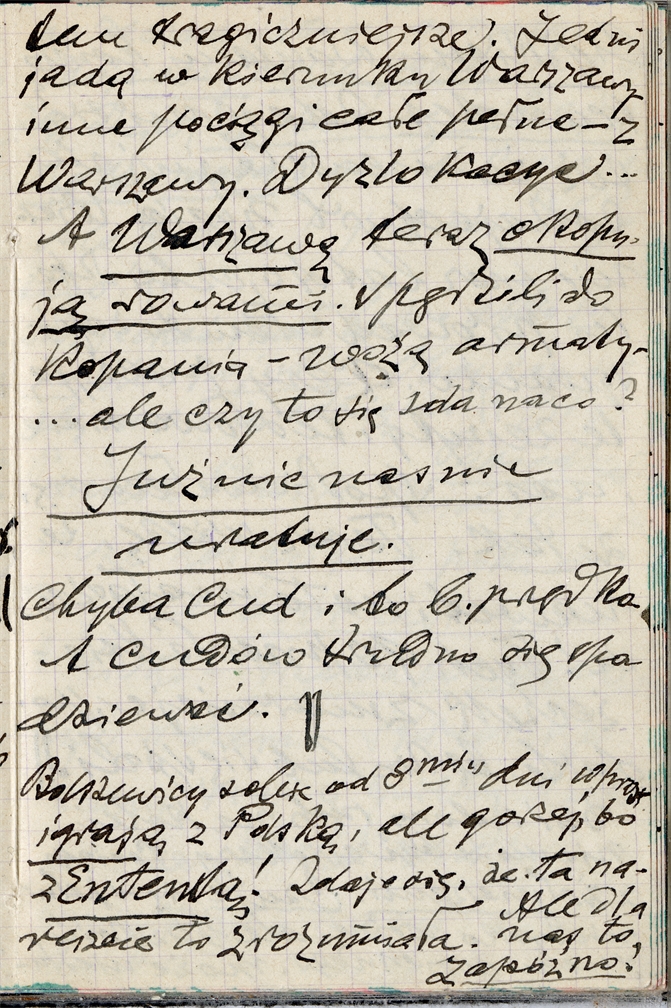 tem tragiczniejsze). Jedni
jadą w kierunku Warszawy
inne pociągi całe pełne – z
Warszawy. Dyzlokacye...
A Warszawę teraz okopu-
ją rowami. Spędzili do
kopania – wożą armaty –
... ale czy to się zda na co?
Już nic nas nie
uratuje.
Chyba Cud i to b. prędko.
A cudów trudno się spo
dziewać.
Bolszewicy sobie od 8miu dni wprost
igrają z Polską, ale gorzej, bo
z Ententą! Zdaje się, że ta na-
reszcie to zrozumiała. Ale dla
nas to
zapóźno!